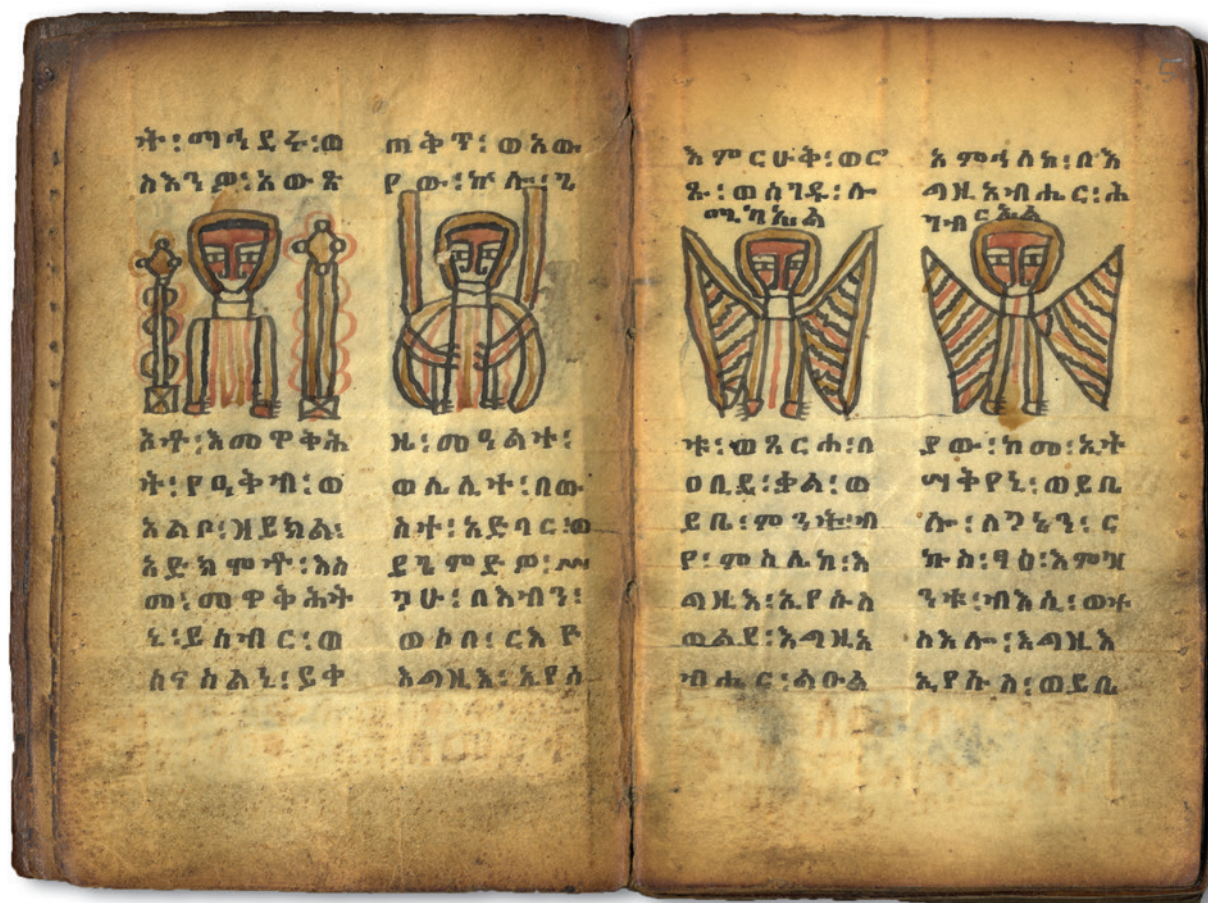 ት፡ማኅደሩ፡ወ
ስእንዎ፡አውጽ
አቶ፡እመዋቅሕ
ት፡የዓቅብ፡ወ
አልቦ፡ዝይክል፡
አድክሞቶ፡እስ
መ፡መዋቅሕት
ኒ፡ይሰብር፡ወ
ሰናስልኒ፡ይቀ
ጠቅጥ፡ወአው
የው፡ኵሎ፡ጊ
ዜ፡መዓልተ፡
ወሌሊተ፡በው
ስተ፡አድባር፡ወ
ይጌምድዎ፡ሥ
ጋሁ፡በእብን፡
ወሶበ፡ርእዮ
እግዚእ፡ኢየሱ
እምርሁቅ፡ወሮ
ጹ፡ወሰገዱ፡ሎ
ሚካኤል
ቱ፡ወጸርሐ፡በ
ዐቢይ፡ቃል፡ወ
ይቤ፡ምንት፡ብ
የ፡ምስሌከ፡እ
ግዚእ፡ኢየሱስ
ወልደ፡እግዚአ
ብሔር፡ልዑል
አምኅለከ፡በእ
ግዚአብሔር፡ሕ
ገብርኤል
ያው፡ከመ፡ኢት
ሣቅየኒ፡ወይቤ
ሎ፡ለጋኔን፡ር
ኩስ፡ፃዕ፡እምዝ
ንቱ፡ብእሲ፡ወተ
ስእሎ፡እግዚእ
ኢየሱስ፡ወይቤ